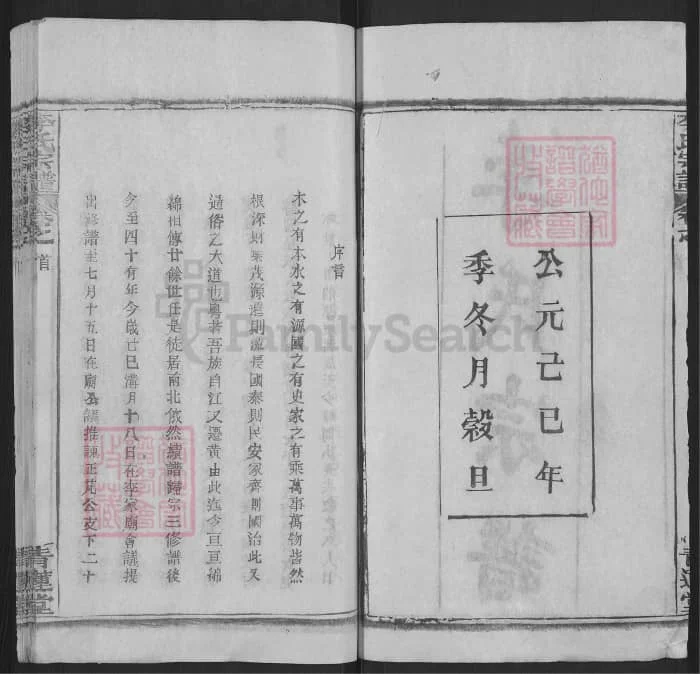 公元己巳年
季冬月穀旦
序言
木之有本水之有源國之有史家之有乘萬事萬物皆然
根深則葉茂源遠則流長國泰則民安家齊則國治此又
通俗之大道也粵若吾族自江又遷黄由此迄今亘亘綿
綿相傳廿餘世任是徙居南北依然續譜歸宗三修譜後
今至四十有年今歲己巳溝月十八日在李家廟會議提
出修譜至七月十五日在廟公議推諫正梵公支下二十
李氏宗譜
卷之首
青蓮堂
李氏宗譜
青蓮堂
FamilySearch